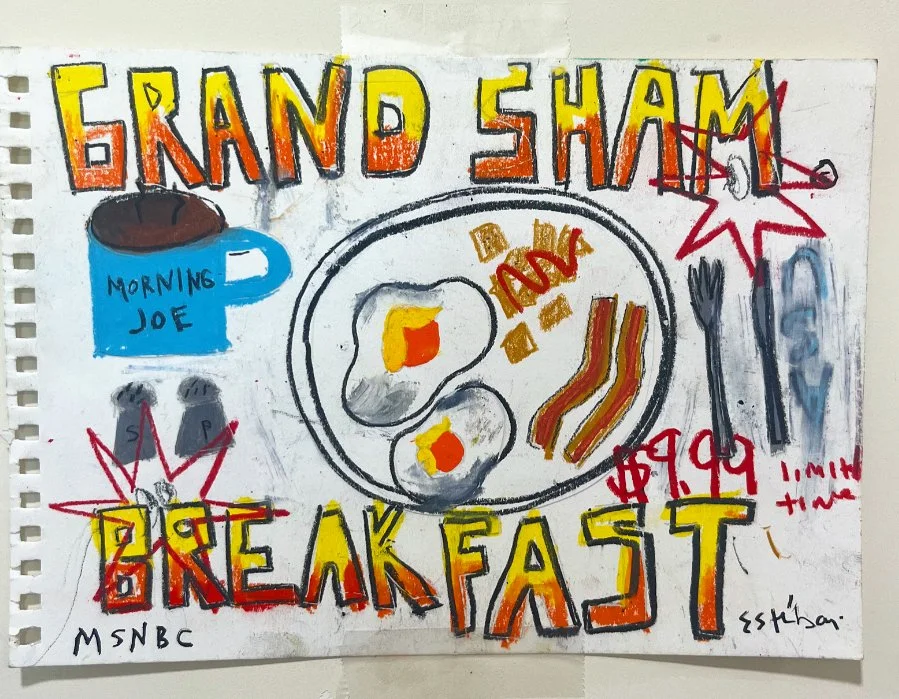 GRAND SHAM
MORNING
JOE
USA
S P
$9.99
limited
time
BREAKFAST
MSNBC